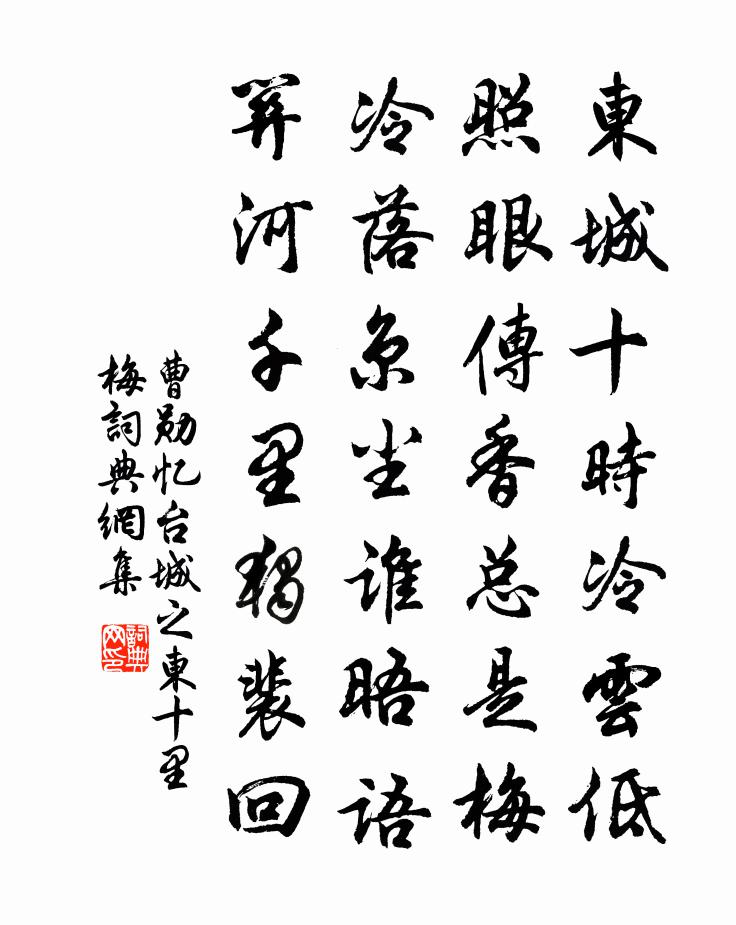 東城十時冷雲低
照眼傳香总是梅
冷落京尘谁晤语
幷河千里獨裴回
曹勋忆台城之東十里
梅詞典網集
詞典
网印